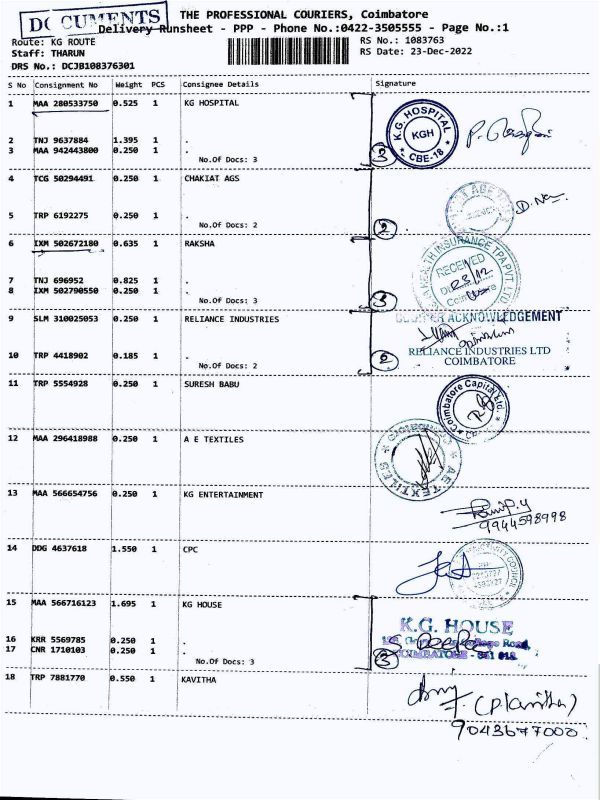 DOCUMENTS
THE PROFESSIONAL COURIERS, Coimbatore
Delivery Runsheet - PPP - Phone No.:0422-3505555 - Page No.:1
Route: KG ROUTE
RS No.: 1083763
Staff: THARUN
RS Date: 23-Dec-2022
DRS No.: DCJB108376301
S No Consignment No Weight PCS Consignee Details Signature
1 MAA 280533750 0.525 1 KG HOSPITAL
K.G. HOSPITAL
KGH
CBE-18
2 TNJ 9637884 1.395 1 .
3 MAA 942443800 0.250 1 .
No.Of Docs: 3
3
4 TCG 50294491 0.250 1 CHAKIAT AGS
5 TRP 6192275 0.250 1 .
No.Of Docs: 2
2
6 IXM 502672180 0.635 1 RAKSHA
HEALTH INSURANCE TPA PVT. LTD.
RECEIVED
23/12
Coimbatore
7 TNJ 696952 0.825 1 .
8 IXM 502790550 0.250 1 .
No.Of Docs: 3
3
9 SLM 310025053 0.250 1 RELIANCE INDUSTRIES
COURIER ACKNOWLEDGEMENT
RELIANCE INDUSTRIES LTD
COIMBATORE
10 TRP 4418902 0.185 1 .
No.Of Docs: 2
2
11 TRP 5554928 0.250 1 SURESH BABU
Coimbatore Capital Ltd.
12 MAA 296418988 0.250 1 A E TEXTILES
AE TEXTILES
13 MAA 566654756 0.250 1 KG ENTERTAINMENT
9944598998
14 DDG 4637618 1.550 1 CPC
15 MAA 566716123 1.695 1 KG HOUSE
K.G. HOUSE
College Road,
COIMBATORE - 641 018.
16 KRR 5569785 0.250 1 .
17 CNR 1710103 0.250 1 .
No.Of Docs: 3
3
18 TRP 7881770 0.550 1 KAVITHA
(P. Kavitha)
9043677000